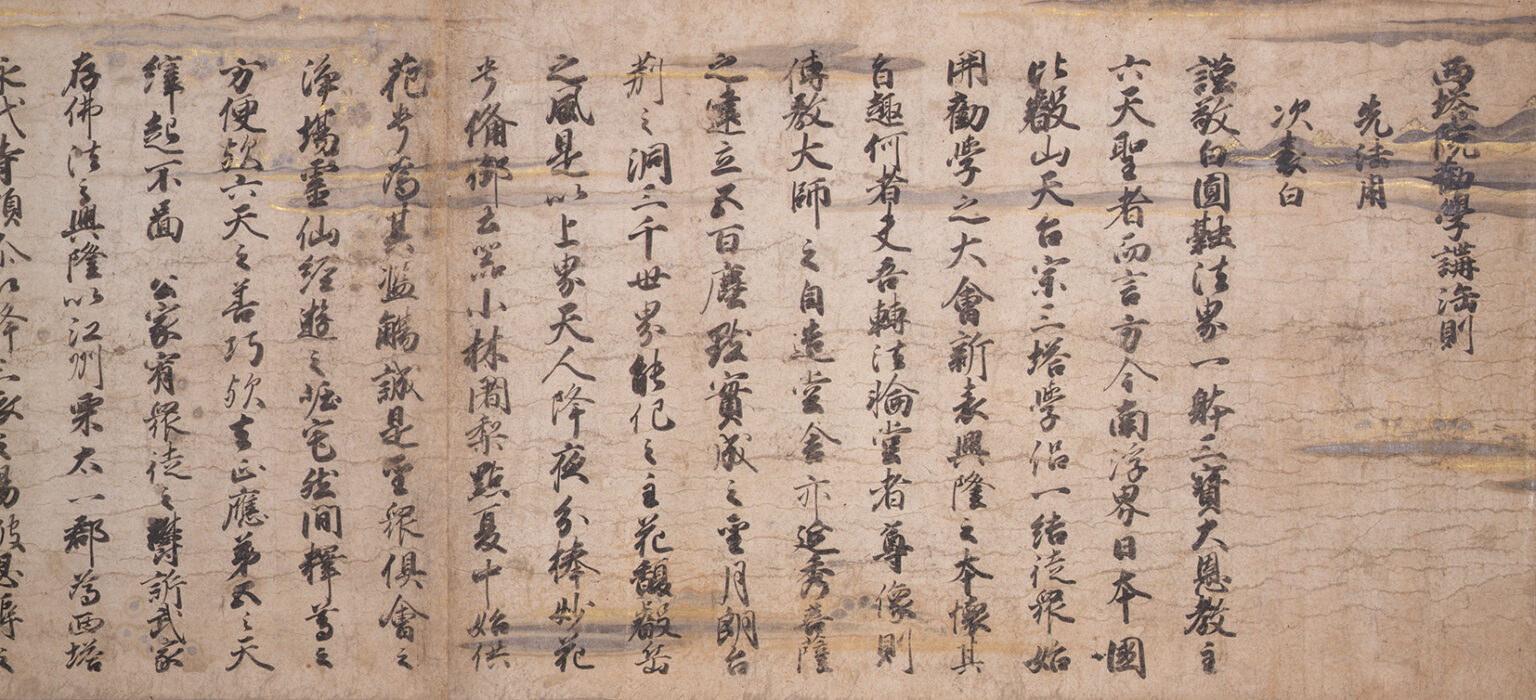 西塔院勸學講法則
先法用
次表白
謹敬白圓融法界一躰三寳大恩教主
六天聖者而言方今南浮界日本國
比叡山天台宗三塔學侶一結徒衆始
開勸學之大會新表興隆之本懷其
旨趣何者夫吾轉法輪堂者尊像則
傳教大師之自造堂舎亦延秀菩薩
之建立五百塵點實成之聖月朗台
荊之洞三千世界能化之主花馥叡岳
之風是以上界天人降夜分捧妙花
号備御去品小林闍梨點夏中始供
花号為其濫觴誠是聖衆倶會之
浄場霊仙経遊之崛宅然間釋尊之
方便欤六天之善巧欤去正應第五之天
緯起不啚公家宥衆徒之欝訴武家
存佛法之興隆以江州栗太一郡為西塔
永代寺領